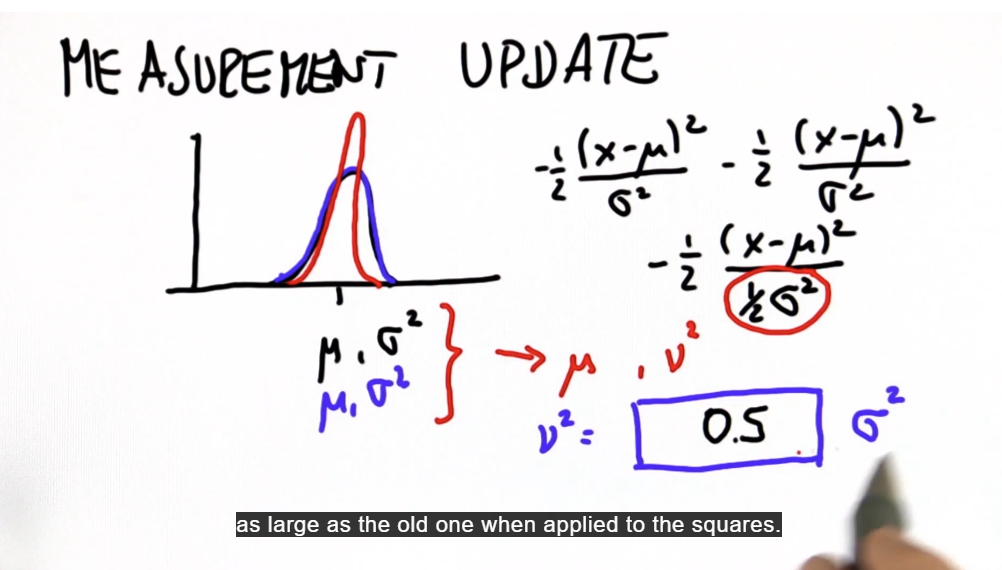 MEASUREMENT UPDATE
-½ (x-μ)² / σ² - ½ (x-μ)² / σ²
-½ (x-μ)² / ½σ²
μ, σ² } → μ, ν²
μ, σ²
ν² = 0.5 σ²
as large as the old one when applied to the squares.